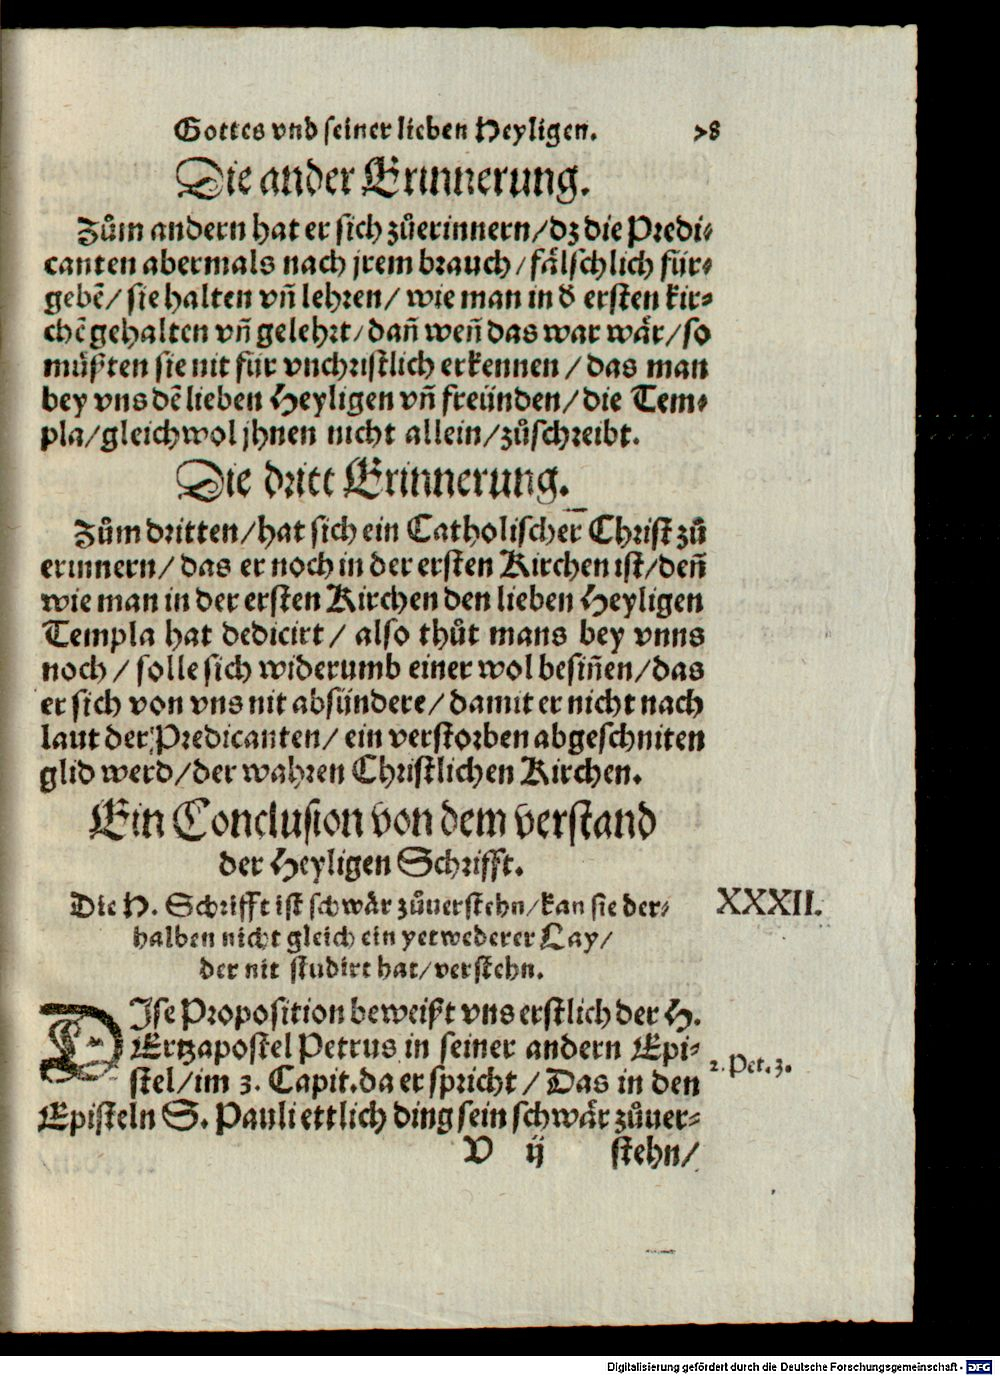 Gottes vnd seiner lieben Heyligen. 78
Die ander Erinnerung.
Zům andern hat er sich zůerinnern/dz die Predi-
canten abermals nach jrem brauch/fälschlich für-
gebẽ/sie halten vñ lehren/wie man in d̕ ersten kir-
chẽ gehalten vñ gelehrt/dañ weñ das war wär/so
müßten sie nit für vnchristlich erkennen/das man
bey vns dẽ lieben Heyligen vñ freünden/die Tem-
pla/gleichwol jhnen nicht allein/zůschreibt.
Die dritt Erinnerung.
Zům dritten/hat sich ein Catholischer Christ zů
erinnern/das er noch in der ersten Kirchen ist/deñ
wie man in der ersten Kirchen den lieben Heyligen
Templa hat dedicirt/also thůt mans bey vnns
noch/solle sich widerumb einer wol besiñen/das
er sich von vns nit absündere/damit er nicht nach
laut der Predicanten/ein verstorben abgeschniten
glid werd/der wahren Christlichen Kirchen.
Ein Conclusion von dem verstand
der Heyligen Schrifft.
Die H. Schrifft ist schwär zůuerstehn/kan sie der- XXXII.
halben nicht gleich ein yetwederer Lay/
der nit studirt hat/verstehn.
DIse Proposition beweißt vns erstlich der H.
Ertzapostel Petrus in seiner andern Epi- 2. Pet. 3.
stel/im 3. Capit. da er spricht/Das in den
Episteln S. Pauli ettlich ding sein schwär zůuer-
V ij stehn/
Digitalisierung gefördert durch die Deutsche Forschungsgemeinschaft - DFG